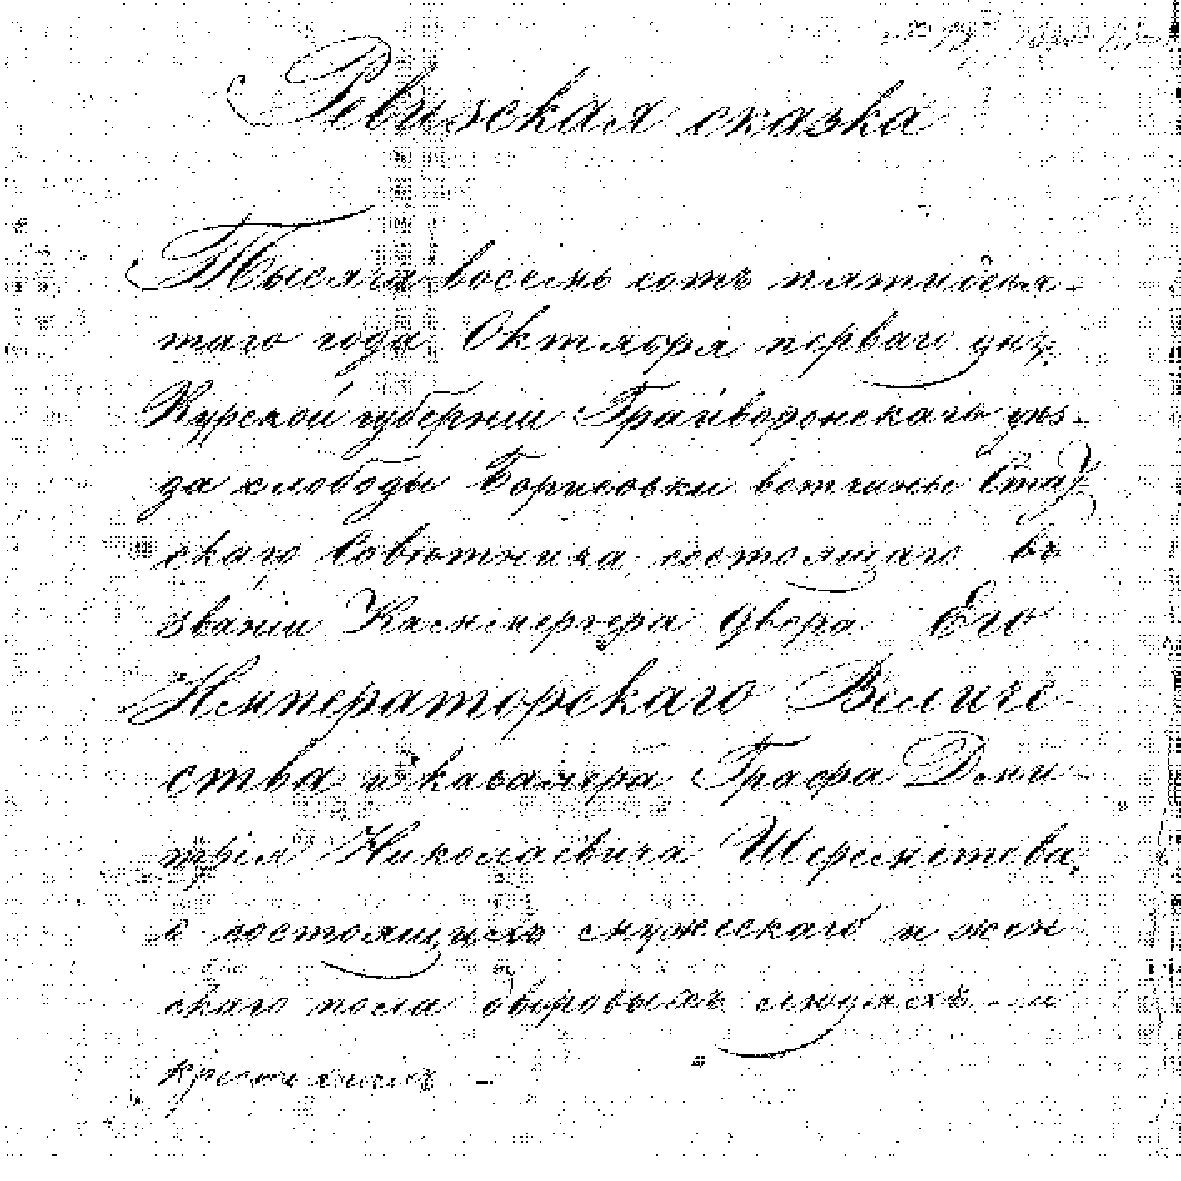 Ревизская сказка
Тысяча восемь сотъ пятидеся-
таго года Октября перваго дня,
Курской губерніи Грайворонскаго уѣз-
да слободы Борисовки вотчины Стат
скаго Совѣтника, состоящаго въ
званіи Каммергера Двора Его
Императорскаго Величе-
ства и кавалера Графа Дми-
трія Николаевича Шереметева,
о состоящихъ мужескаго и жен-
скаго пола дворовыхъ людяхъ и
крестьянахъ —